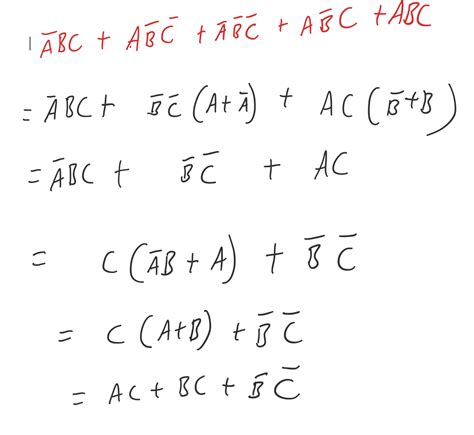 A̅BC + AB̅C̅ + A̅B̅C̅ + AB̅C + ABC
= A̅BC + B̅C̅ (A + A̅) + AC (B̅ + B)
= A̅BC + B̅C̅ + AC
= C (A̅B + A) + B̅ C̅
= C (A+B) + B̅ C̅
= AC + BC + B̅ C̅